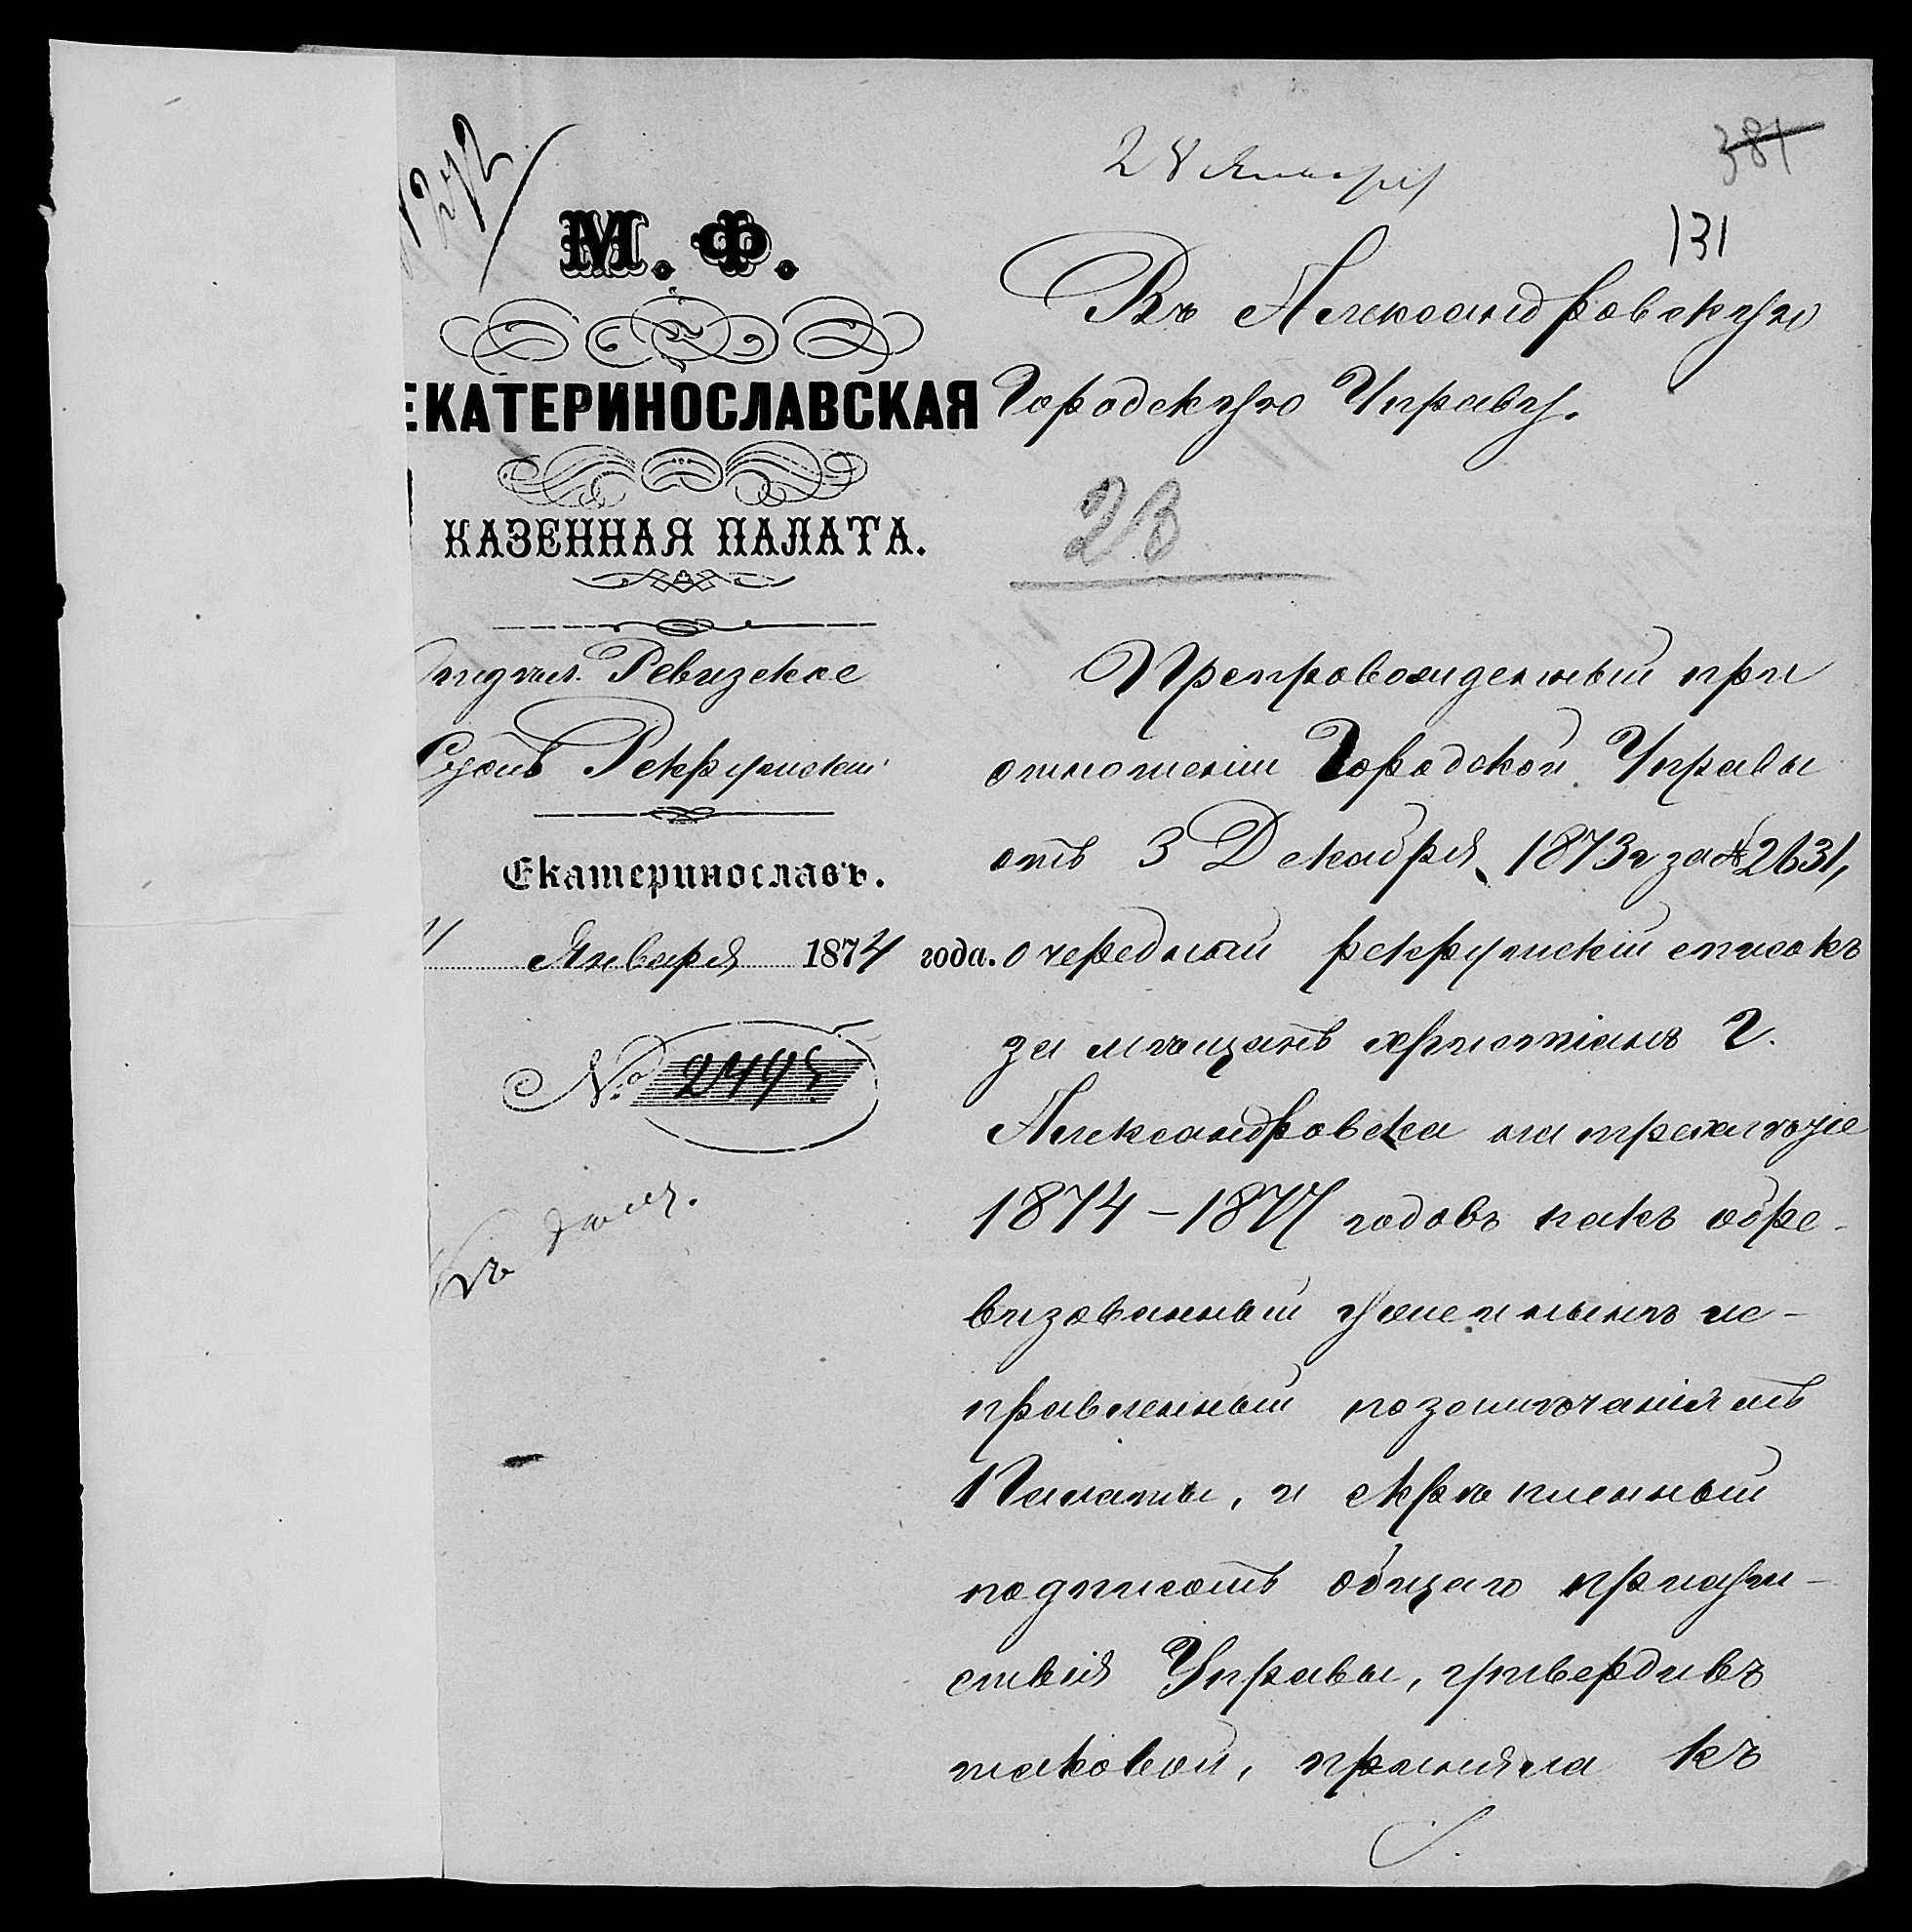 28 Января
381
131
М. Ф.
ЕКАТЕРИНОСЛАВСКАЯ
КАЗЕННАЯ ПАЛАТА.
Ревизское
Столъ Рекрутскій
Екатеринославъ.
Января 1874 года.
№ 2495
Къ дѣлу.
Въ Александровскую
Городскую Управу.
28
Препровожденный при
отношеніи Городской Управы
отъ 3 Декабря 1873 г за № 2631,
очередный рекрутскій списокъ
за мѣщанъ христіанъ г.
Александровска на трехлѣтіе
1874–1877 годовъ какъ обре-
визованный
правленный по замѣчаніямъ
Палаты, и скрѣпленный
подписомъ общаго присут-
ствія Управы, утвердивъ
таковой, приняла къ